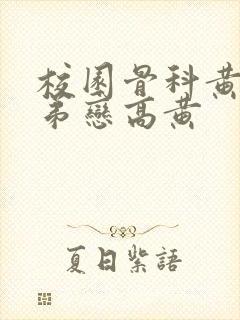 校園骨科黃
弟戀高黃
夏日紫語